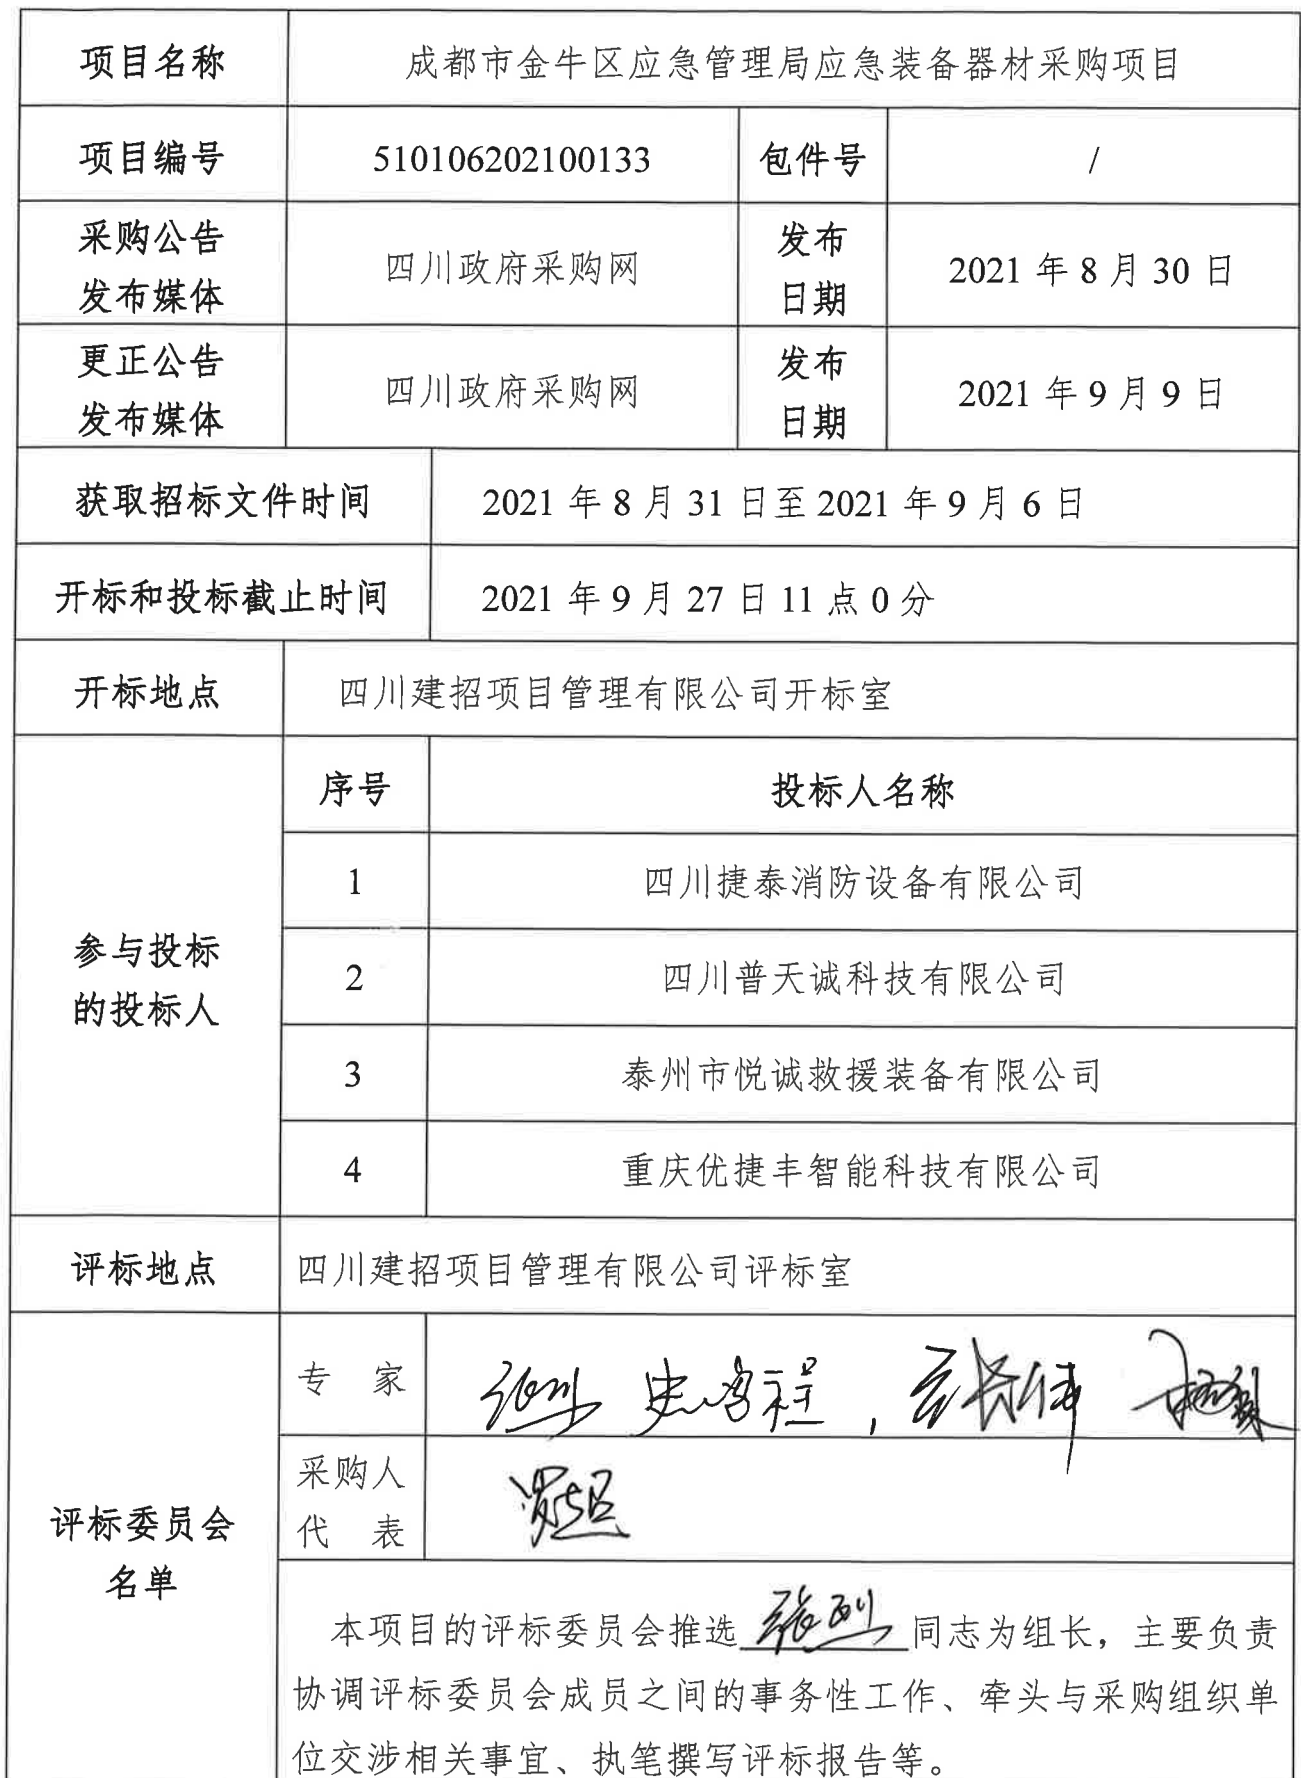 项目名称 成都市金牛区应急管理局应急装备器材采购项目
项目编号 510106202100133 包件号 /
采购公告
发布媒体
四川政府采购网
发布
日期
2021 年 8 月 30 日
更正公告
发布媒体
四川政府采购网
发布
日期
2021 年 9 月 9 日
获取招标文件时间 2021 年 8 月 31 日至 2021 年 9 月 6 日
开标和投标截止时间 2021 年 9 月 27 日 11 点 0 分
开标地点 四川建招项目管理有限公司开标室
参与投标
的投标人
序号 投标人名称
1 四川捷泰消防设备有限公司
2 四川普天诚科技有限公司
3 泰州市悦诚救援装备有限公司
4 重庆优捷丰智能科技有限公司
评标地点 四川建招项目管理有限公司评标室
评标委员会
名单
专 家
采购人
代 表
本项目的评标委员会推选 张烈 同志为组长，主要负责
协调评标委员会成员之间的事务性工作、牵头与采购组织单
位交涉相关事宜、执笔撰写评标报告等。